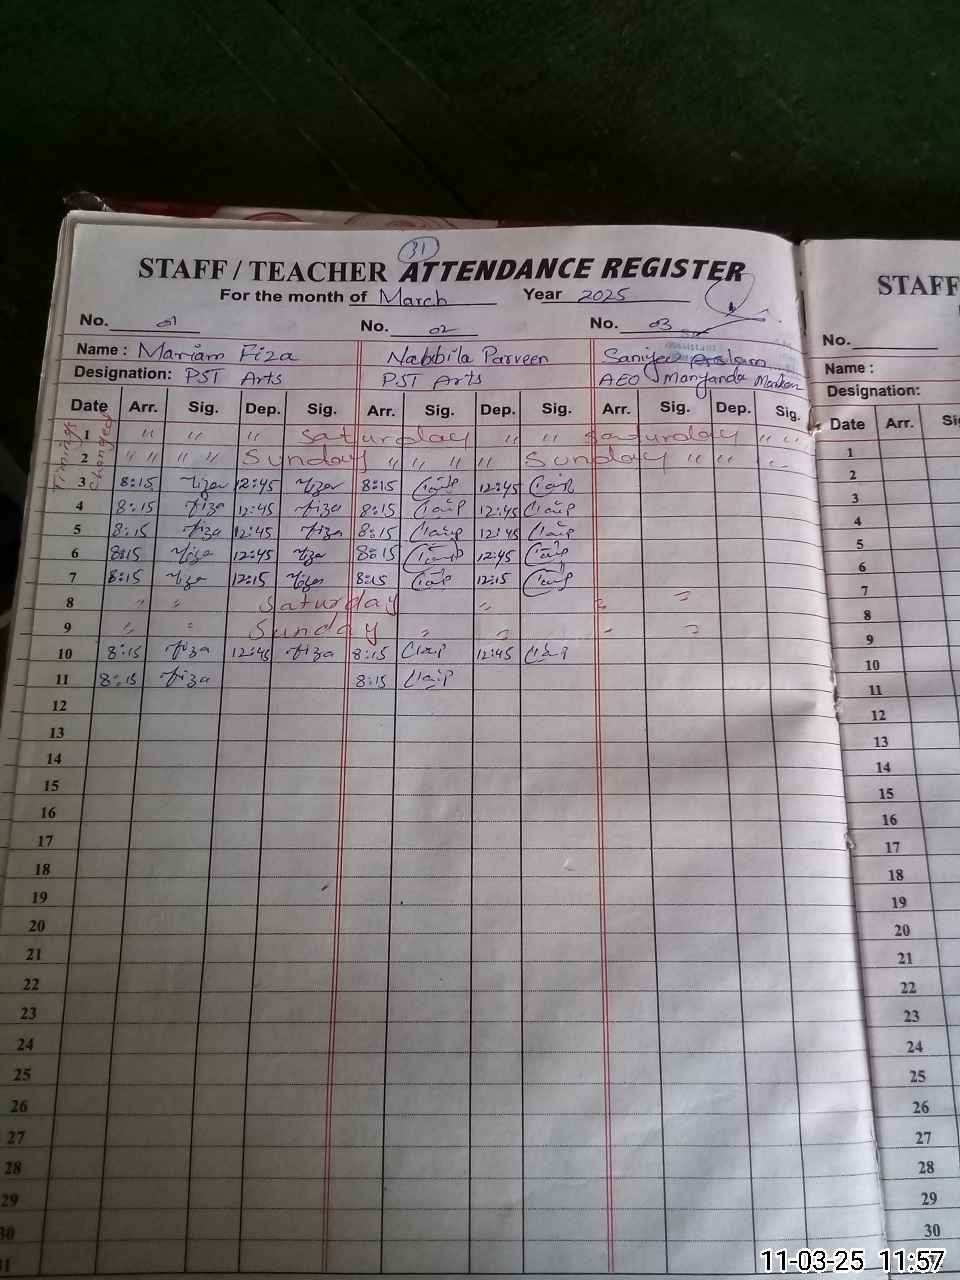 31
STAFF / TEACHER ATTENDANCE REGISTER
For the month of March Year 2025
No. 01 No. 02 No. 03
Name : Mariam Fiza Nabbila Parveen Saniyea Aslam
Designation: PST Arts PST Arts AEO
Date Arr. Sig. Dep. Sig. Arr. Sig. Dep. Sig. Arr. Sig. Dep. Sig.
Timings changed
1 " " " Saturday " " Saturday " "
2 " " " " Sunday " " " " Sunday " " "
3 8:15 Fiza 12:45 Fiza 8:15 12:45
4 8:15 Fiza 12:45 Fiza 8:15 12:45
5 8:15 Fiza 12:45 Fiza 8:15 12:45
6 8:15 Fiza 12:45 Fiza 8:15 12:45
7 8:15 Fiza 12:15 Fiza 8:15 12:15
8 " " Saturday "
9 " " Sunday "
10 8:15 Fiza 12:45 Fiza 8:15 12:45
11 8:15 Fiza 8:15
12
13
14
15
16
17
18
19
20
21
22
23
24
25
26
27
28
29
30
31
STAFF
No.
Name :
Designation:
Date Arr.
1
2
3
4
5
6
7
8
9
10
11
12
13
14
15
16
17
18
19
20
21
22
23
24
25
26
27
28
29
30
11-03-25 11:57